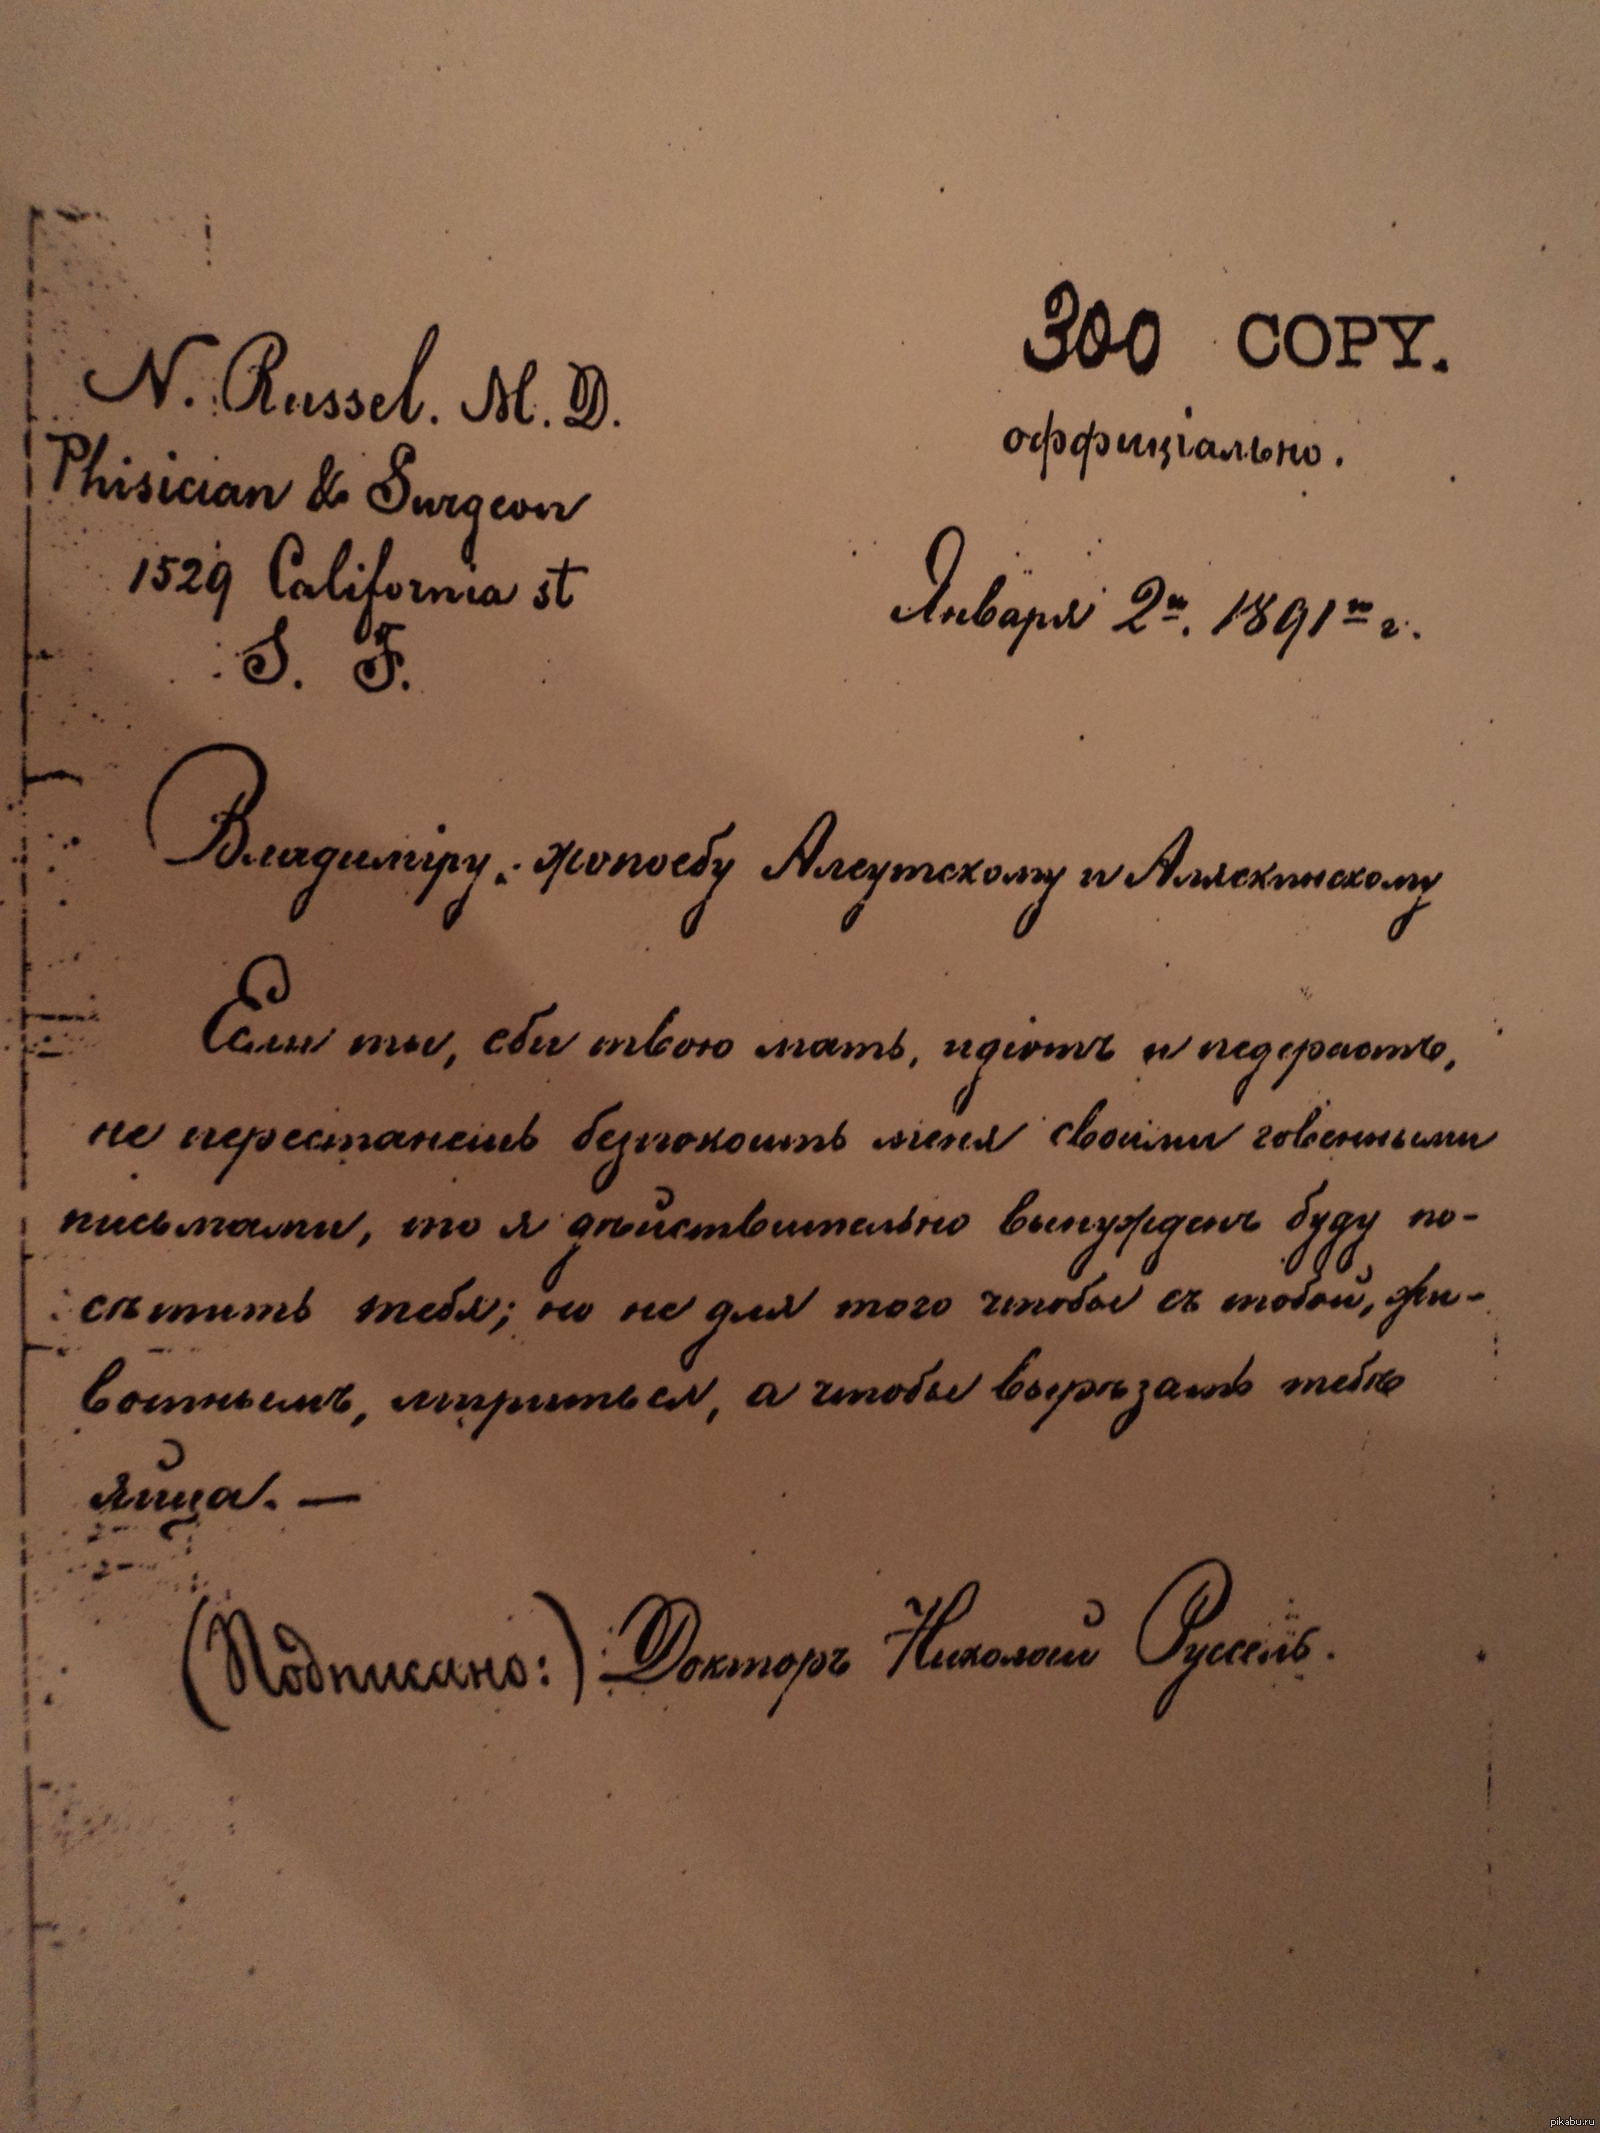 300 COPY.
N. Russel. M. D.
оффиціально.
Phisician & Surgeon
1529 California st
Января 2го. 1891го г.
S. F.
Владиміру, жопоебу Алеутскому и Аляскинскому
Если ты, еби твою мать, идіотъ и педерастъ,
не перестанешь безпокоить меня своими говенными
письмами, то я дѣйствительно вынужденъ буду по-
сѣтить тебя; но не для того чтобы съ тобой, жи-
вотнымъ, мириться, а чтобы вырѣзать тебѣ
яйца. —
(Подписано:) Докторъ Николай Руссель.
pikabu.ru